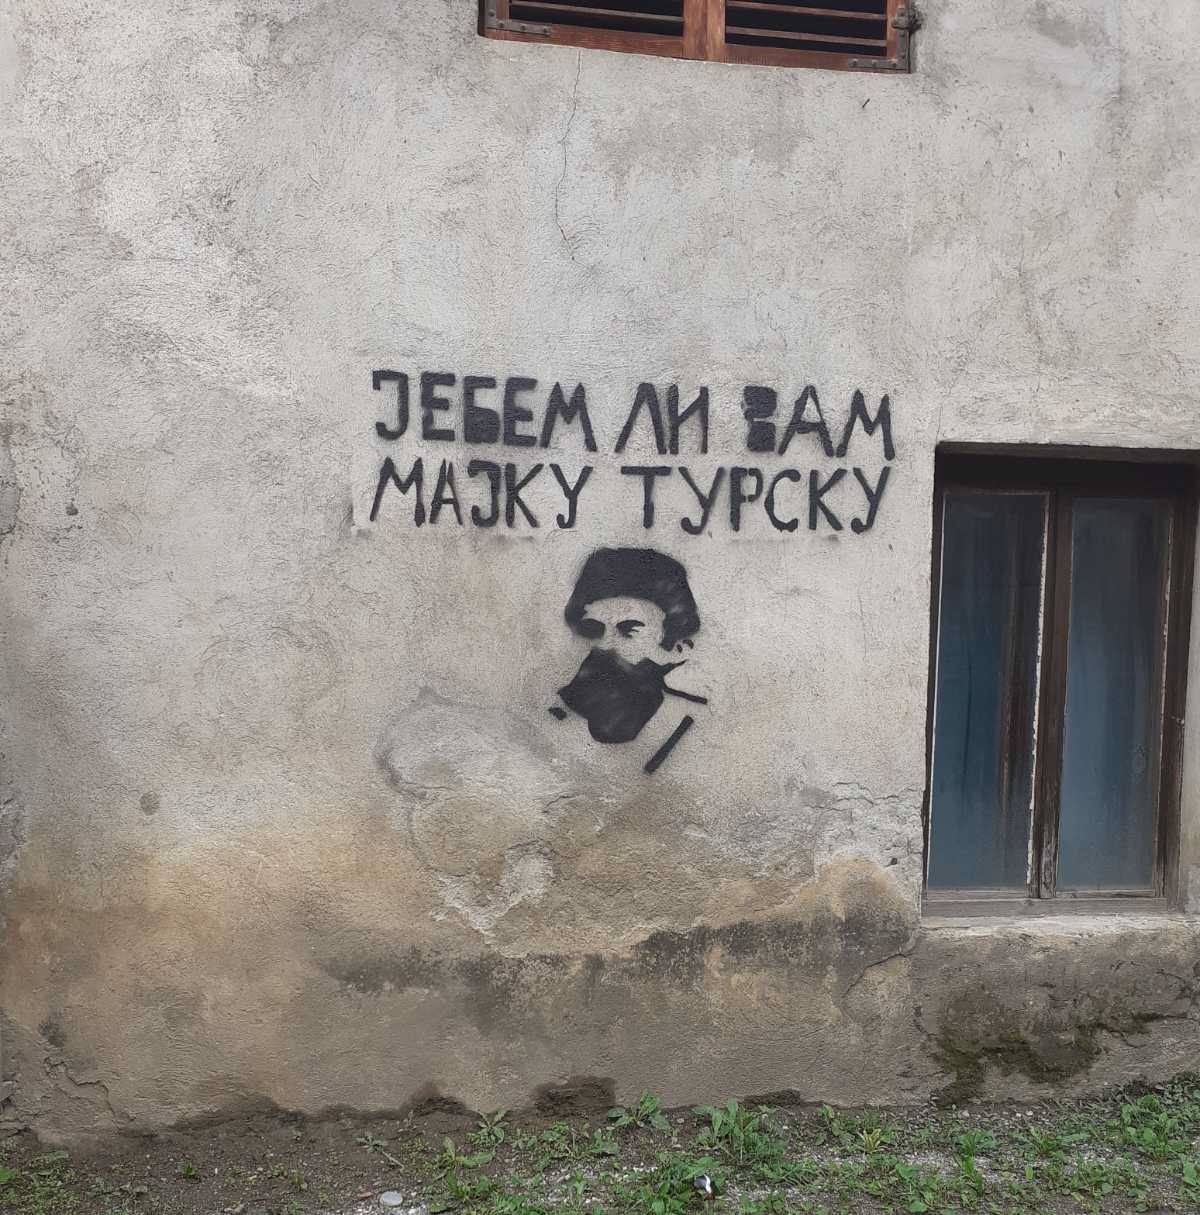 ЈЕБЕМ ЛИ ВАМ
МАЈКУ ТУРСКУ